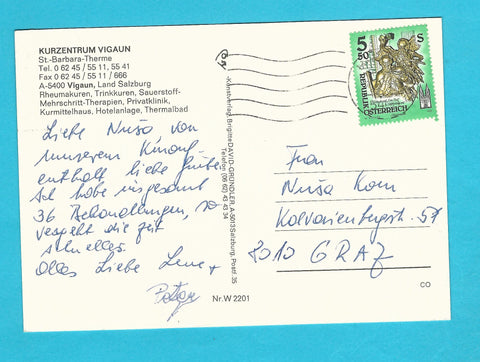 KURZENTRUM VIGAUN
St.-Barbara-Therme
Tel. 0 62 45 / 55 11, 55 41
Fax 0 62 45 / 55 11 / 666
A-5400 Vigaun, Land Salzburg
Rheumakuren, Trinkkuren, Sauerstoff-
Mehrschritt-Therapien, Privatklinik,
Kurmittelhaus, Hotelanlage, Thermalbad
Liebe Nuša, von
unserem Kurauf-
enthalt liebe Grüße.
Ich habe insgesamt
36 Behandlungen, so
vergeht die Zeit
schnelles.
Alles Liebe Lene +
Kunstverlag Brigitte DAVID-GRÜNDLER, A-5013 Salzburg, Postf. 35
Telefon (06 62) 43 43 34
Nr. W 2201
5 50 S
REPUBLIK
ÖSTERREICH
Frau
Nuša Korn
Kalvarienbergstr. 57
8010 GRAZ
CO